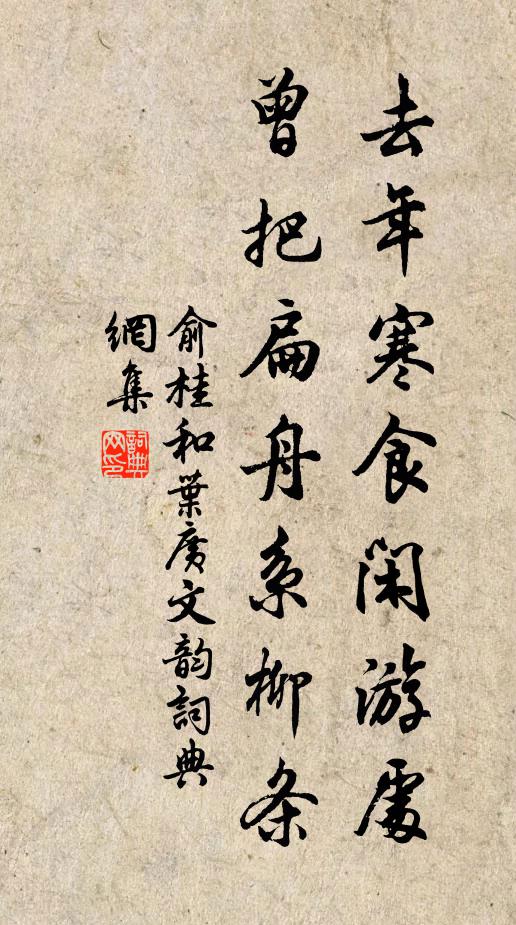 去年寒食閑游處
曾把扁舟系柳条
俞桂和葉廣文韵詞典
網集
詞典网印